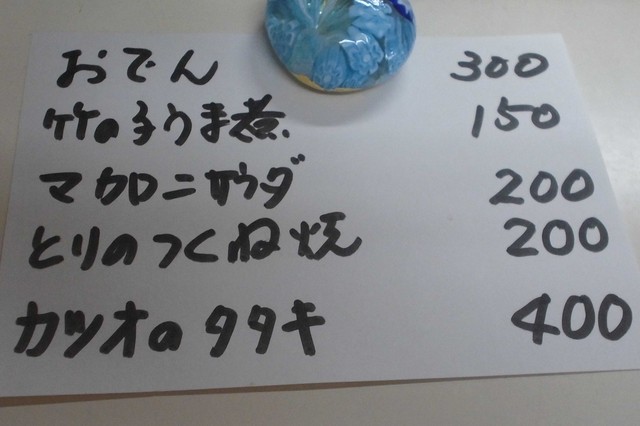 おでん 300
竹の子うま煮 150
マカロニサラダ 200
とりのつくね焼 200
カツオのタタキ 400